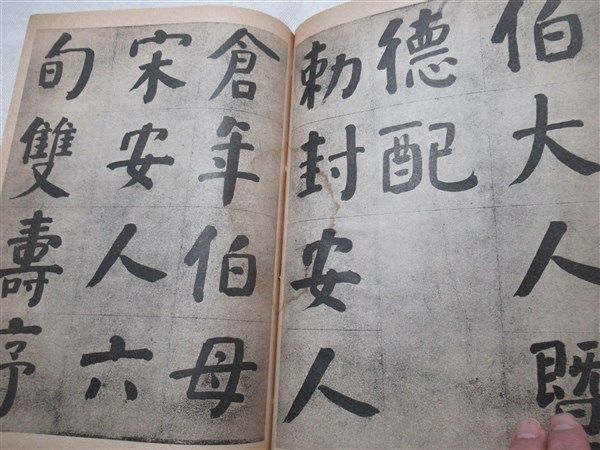 伯大人暨
德配
勅封安人
倉年伯母
宋安人六
旬雙壽序